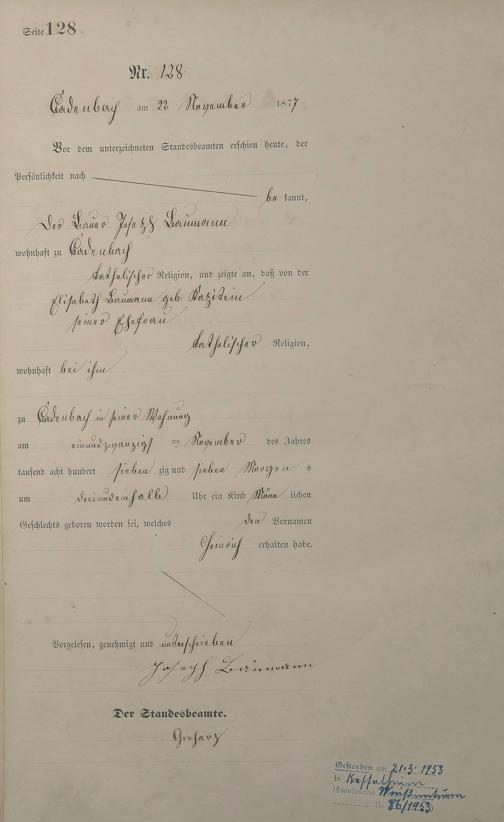 Seite 128
Nr. 128.
Cadenbach am 22 November 1877
Vor dem unterzeichneten Standesbeamten erschien heute, der
Persönlichkeit nach
be kannt,
der Bauer Joseph Baumann
wohnhaft zu Cadenbach
katholischer Religion, und zeigte an, daß von der
Elisabeth Baumann geb.
seiner Ehefrau
katholischer Religion,
wohnhaft bei ihm
zu Cadenbach in seiner Wohnung
am einundzwanzigs ten November des Jahres
tausend acht hundert sieben zig und sieben Morgen s
um Uhr ein Kind männ lichen
Geschlechts geboren worden sei, welches den Vornamen
Heinrich erhalten habe.
Vorgelesen, genehmigt und unterschrieben
Joseph Baumann
Der Standesbeamte.
Gerharz
Gestorben am 21.3.1953
in Kesselheim
(Standesamt Weißenturm
Nr. 86/1953)